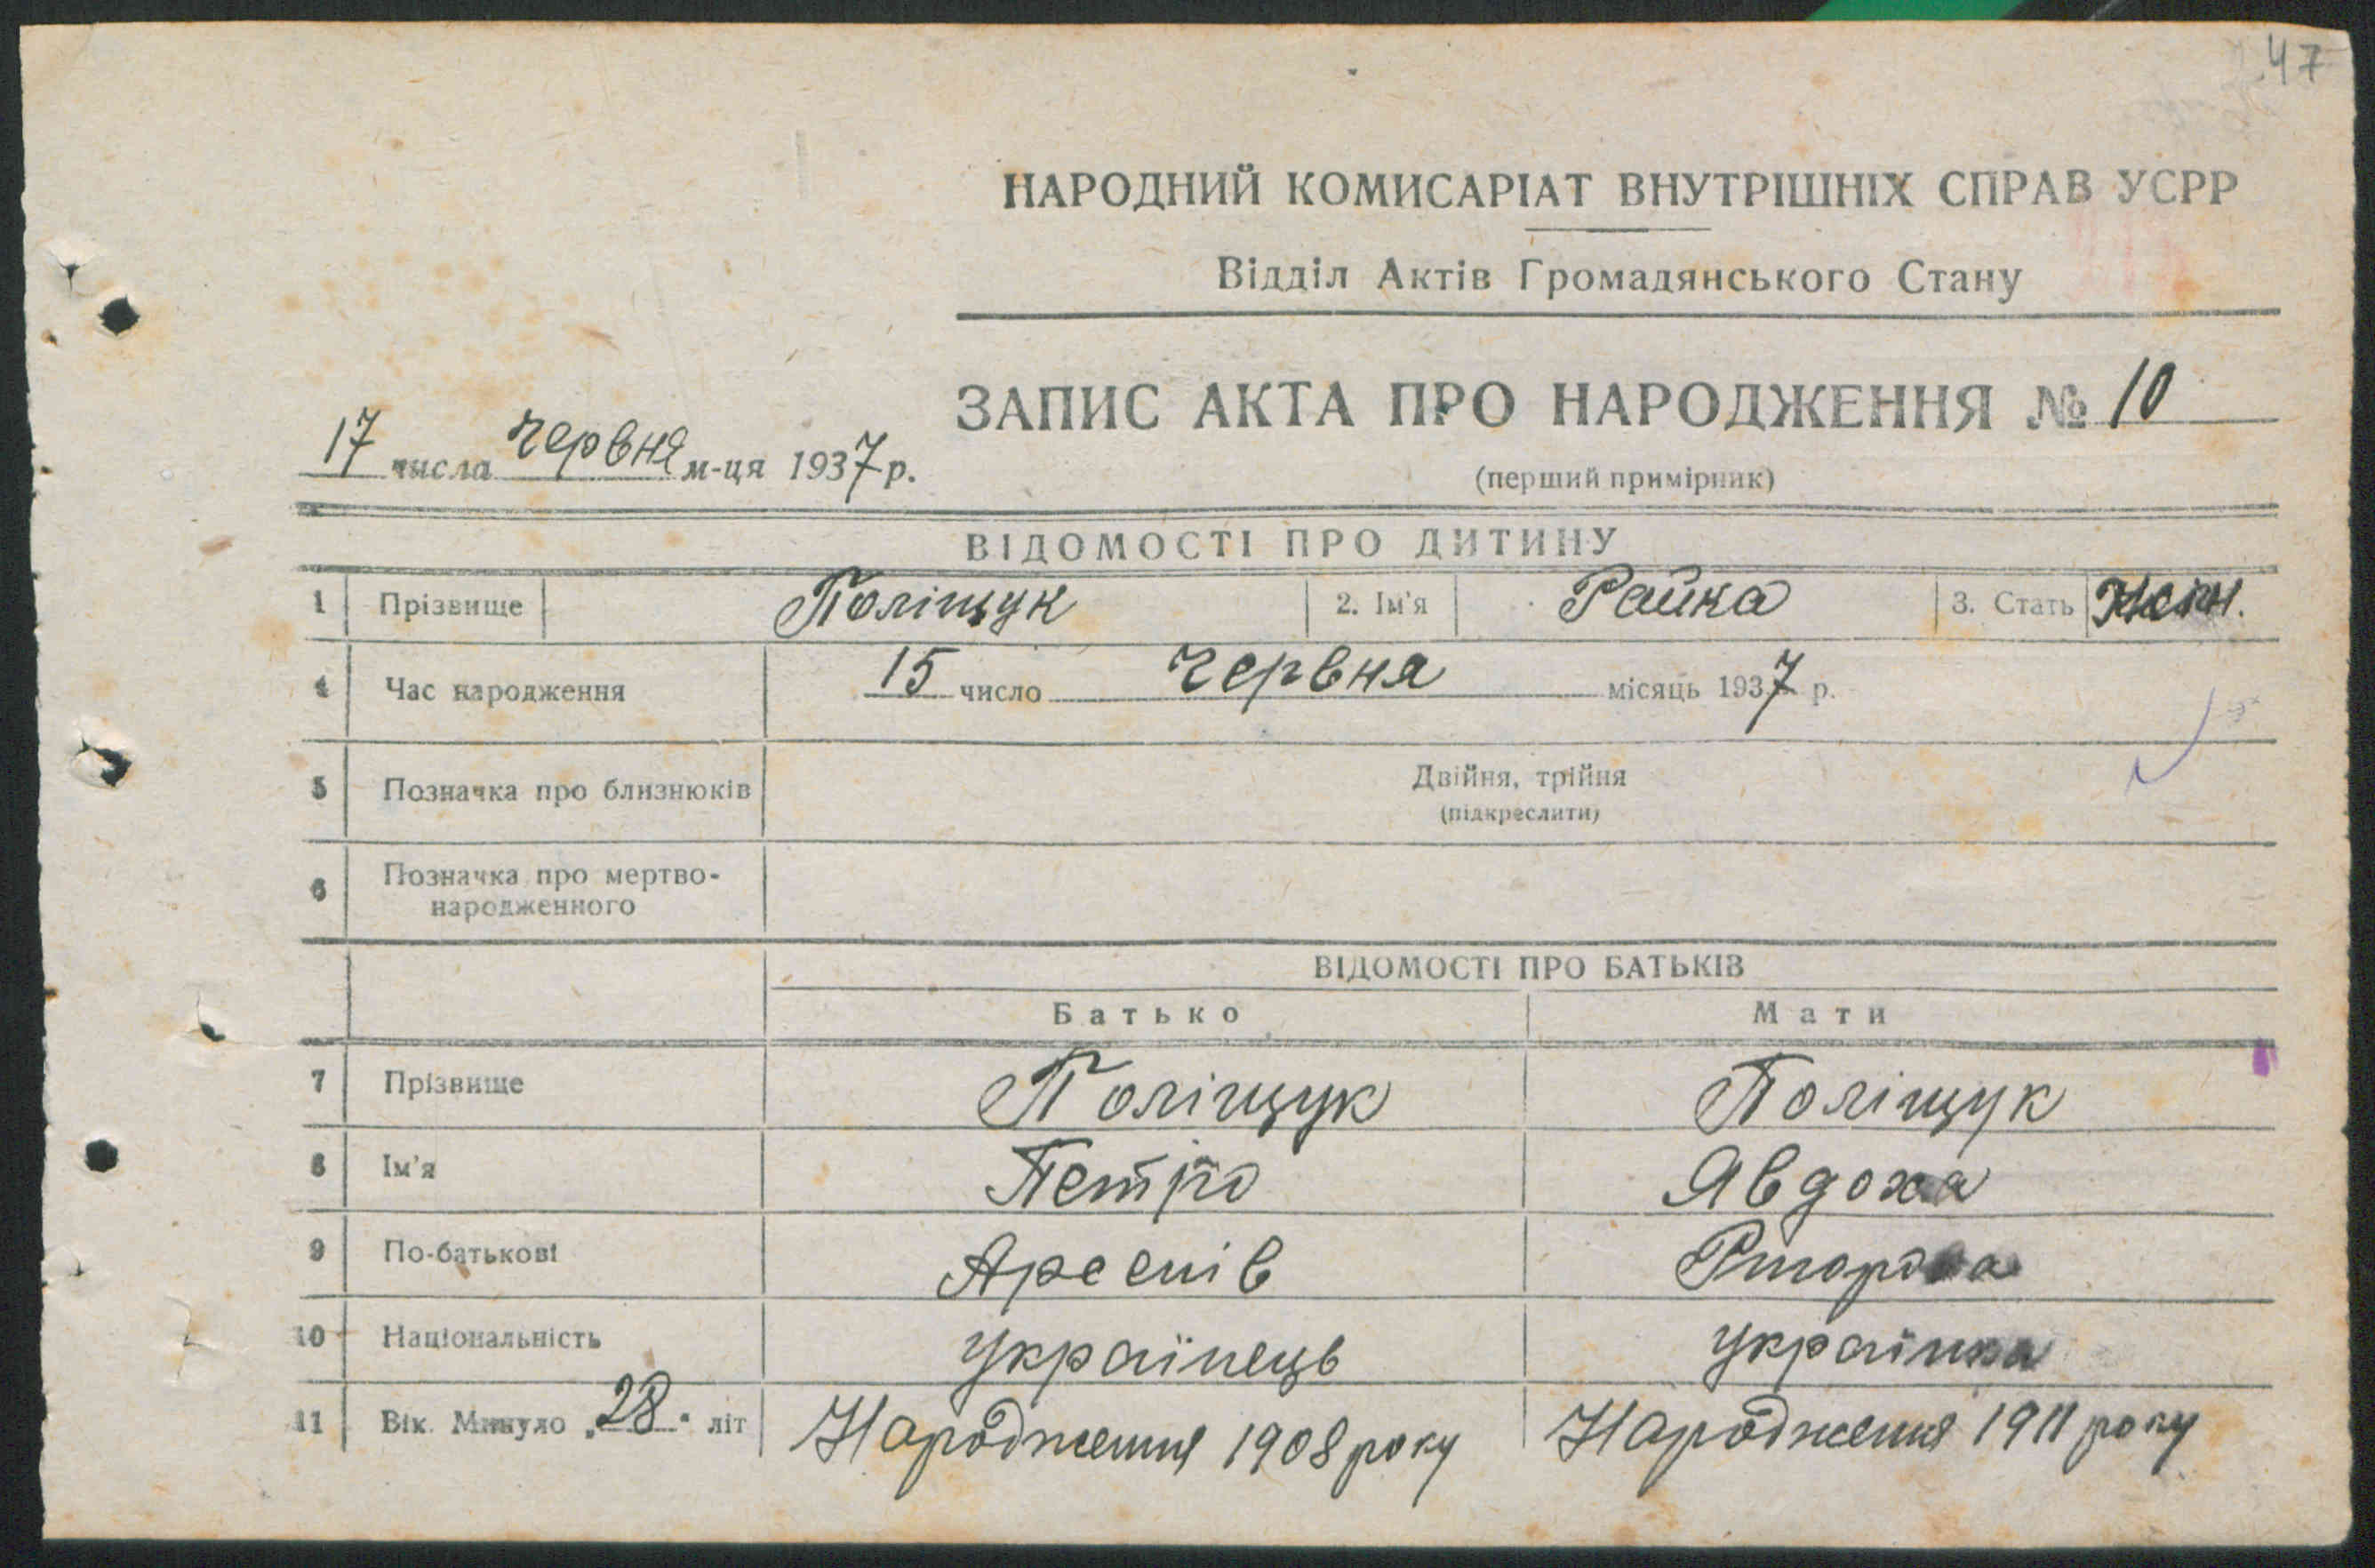 47
НАРОДНИЙ КОМИСАРІАТ ВНУТРІШНІХ СПРАВ УСРР
Відділ Актів Громадянського Стану
ЗАПИС АКТА ПРО НАРОДЖЕННЯ № 10
17 числа червня м-ця 1937 р.
(перший примірник)
ВІДОМОСТІ ПРО ДИТИНУ
1 Прізвище Поліщук 2. Ім'я Райка 3. Стать Жін.
4 Час народження 15 число червня місяць 1937 р.
5 Позначка про близнюків Двійня, трійня
(підкреслити)
6 Позначка про мертво-
народженного
ВІДОМОСТІ ПРО БАТЬКІВ
Батько Мати
7 Прізвище Поліщук Поліщук
8 Ім'я Петро Явдоха
9 По-батькові Арсенів
10 Національність Українець Українка
11 Вік. Минуло „28" літ Народження 1908 року Народження 1911 року